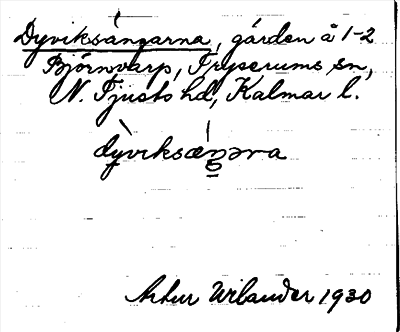 Dyviksängarna, gården å 1-2
Björnvarp, Tryserums sn,
N. Tjusts hd, Kalmar l.
dỳviksæŋəṇa
Artur Wilander 1930